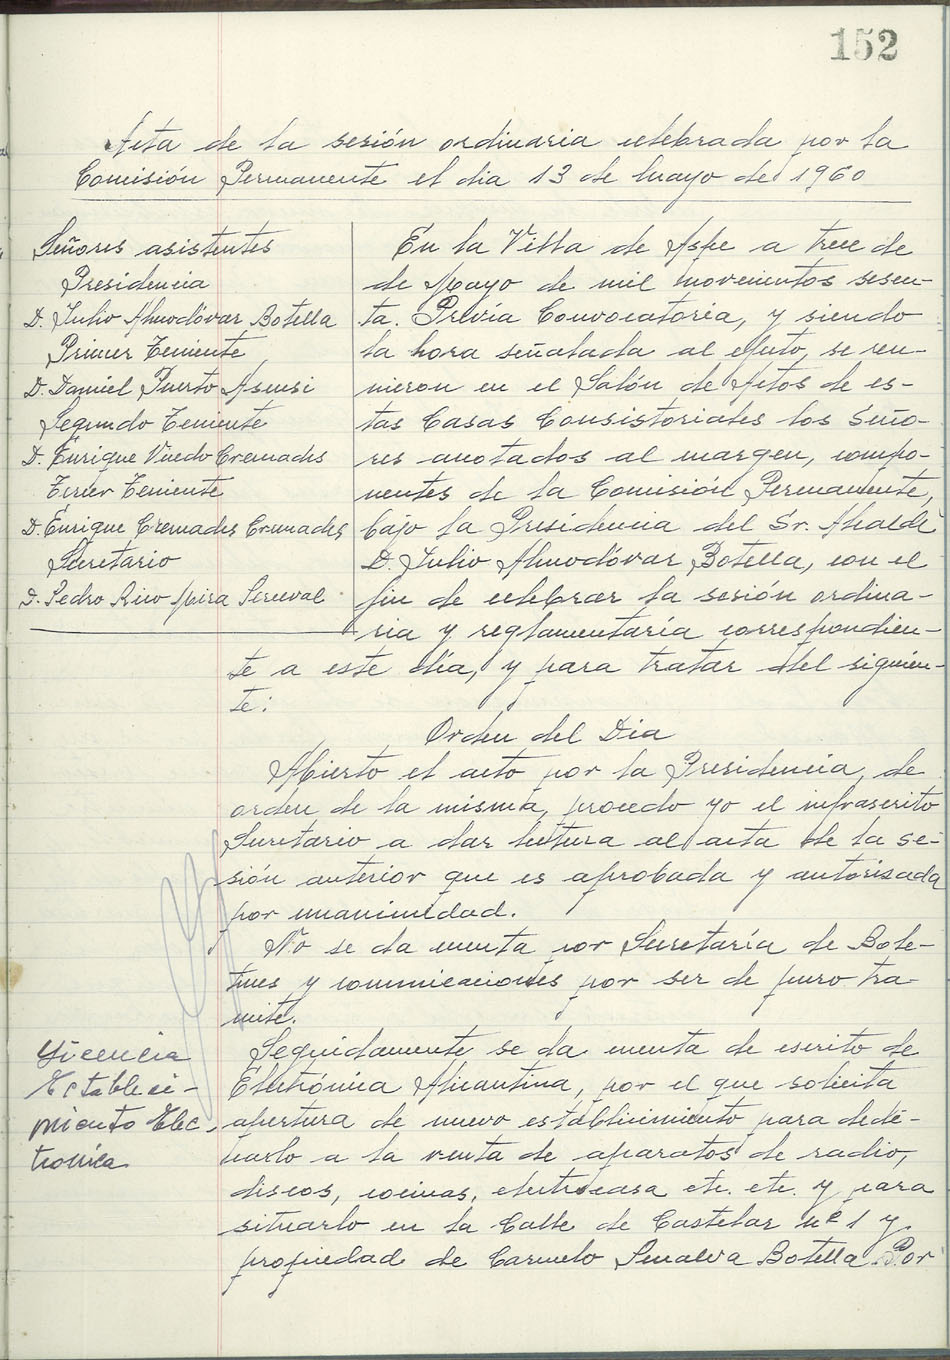 152
Acta de la sesión ordinaria celebrada por la
Comisión Permanente el dia 13 de mayo de 1960
Señores asistentes
Presidencia
D. Julio Almodóvar Botella
Primer Teniente
D. Daniel Puerto Asensi
Segundo Teniente
D. Enrique Vuedo Cremades
Tercer Teniente
D. Enrique Cremades Cremades
Secretario
D. Pedro Rico Mira Perceval
En la Villa de Aspe a trece de
de Mayo de mil novecientos sesen-
ta. Prévia Convocatoria, y siendo
la hora señalada al efecto, se reu-
nieron en el Salón de Actos de es-
tas Casas Consistoriales los Seño-
res anotados al margen, compo-
nentes de la Comisión Permanente,
bajo la Presidencia del Sr. Alcalde
D. Julio Almodóvar Botella, con el
fin de celebrar la sesión ordina-
ria y reglamentaria correspondien-
te a este día, y para tratar del siguien-
te:
Orden del Dia
Abierto el acto por la Presidencia, de
orden de la misma, procedo yo el infrascrito
Secretario a dar lectura al acta de la se-
sión anterior que es aprobada y autorisada
por unanimidad.
No se da cuenta por Secretaría de Bole-
tines y comunicaciones por ser de puro tra-
mite.
Licencia
Estableci-
miento Elec-
tronica
Seguidamente se da cuenta de escrito de
Electrónica Alicantina, por el que solicita
apertura de nuevo establecimiento para dedi-
carlo a la venta de aparatos de radio,
discos, cocinas, electrocasa etc. etc. y para
situarlo en la Calle de Castelar nº 1 y
propiedad de Carmelo Senalva Botella. Por